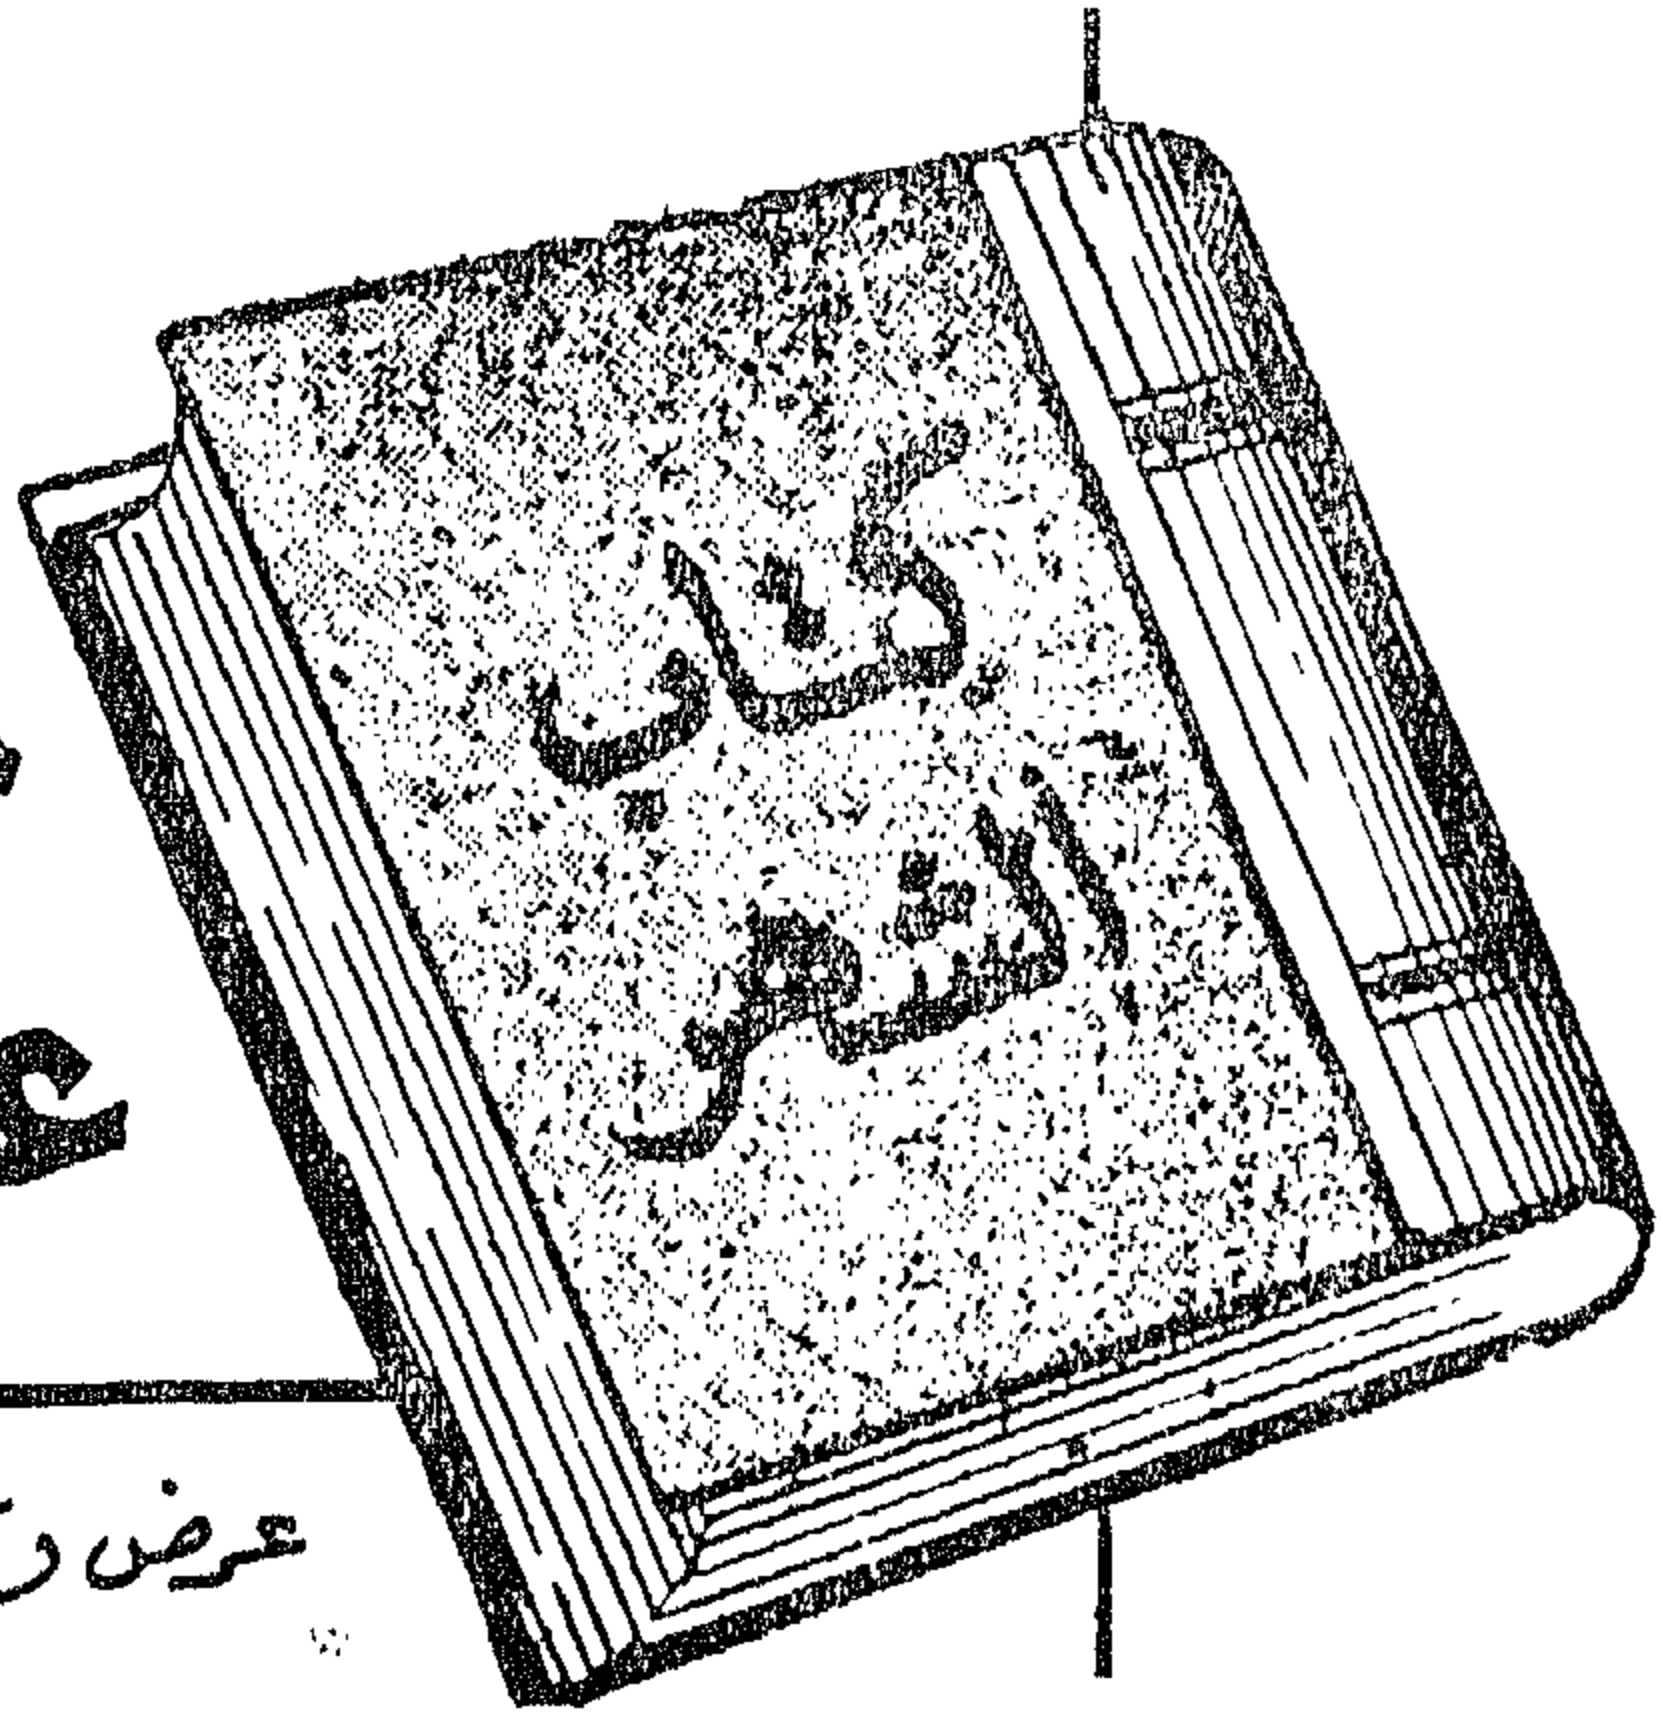 كتاب
الشهر
عرض و